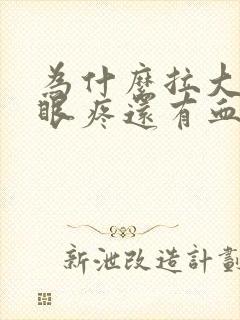 為什麼拉大
眼疼還有血
新泄改造計劃